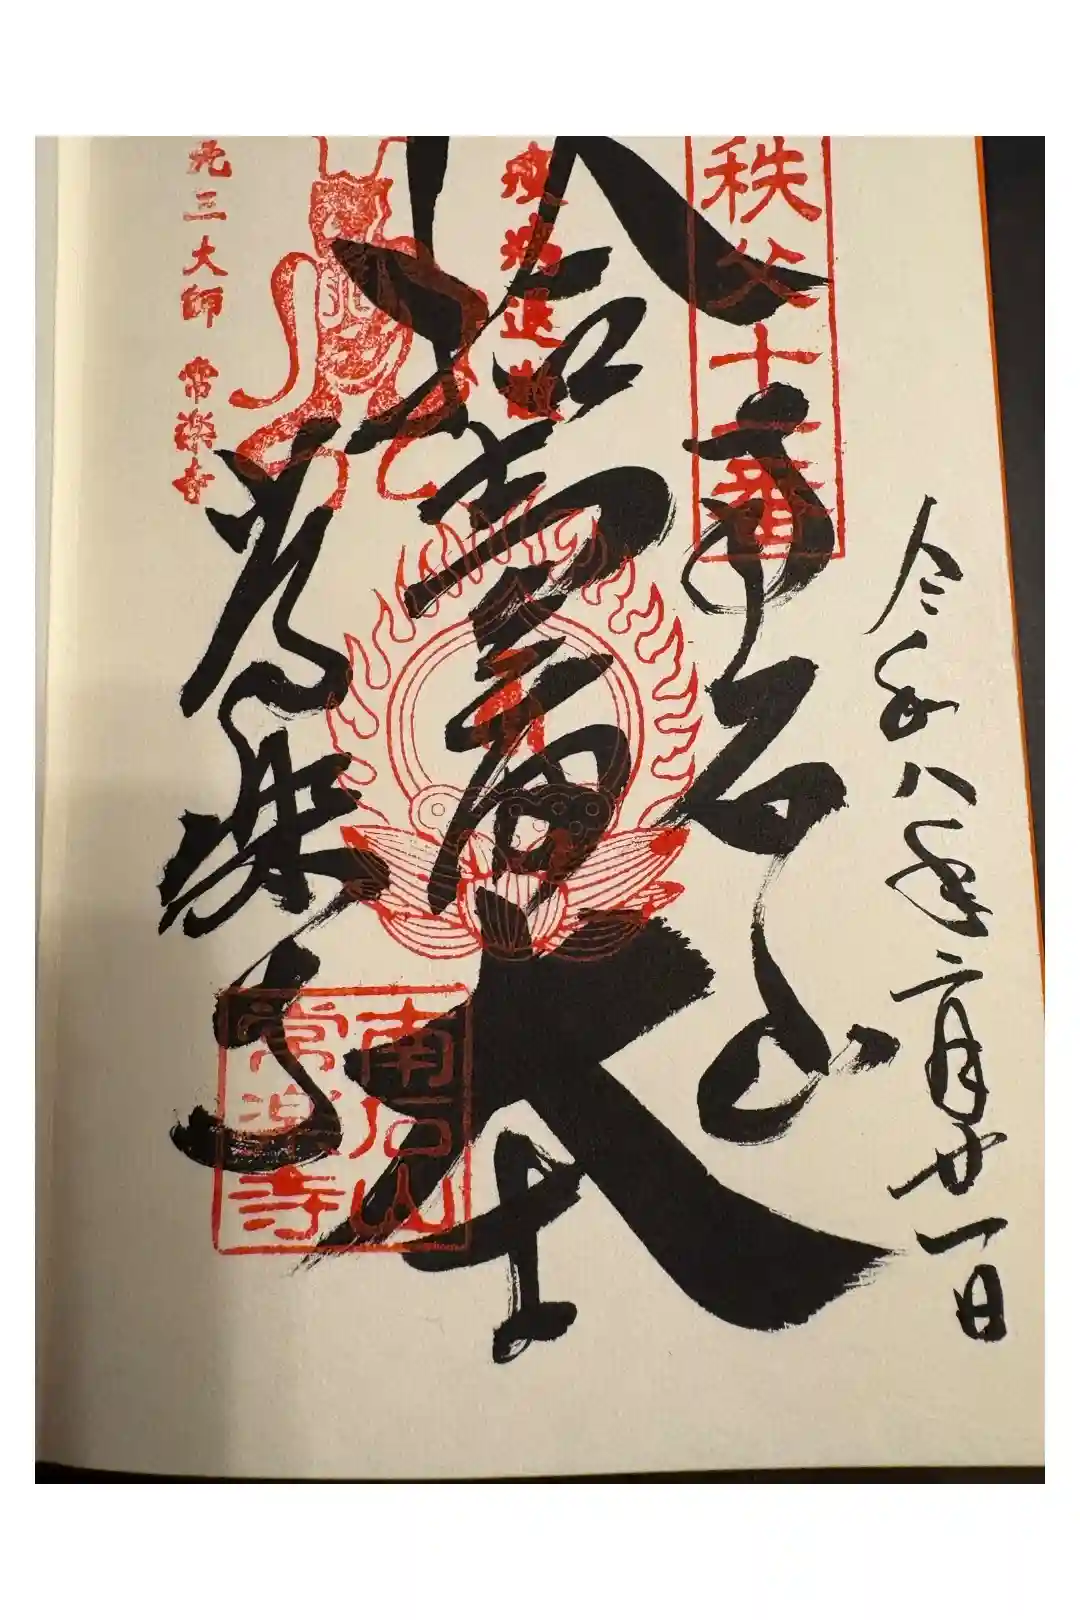 令和八年二月廿一日
秩父十一番
南石山
疫病退散
拾壹面大士
南石山
常楽寺
常楽寺
元三大師 常楽寺